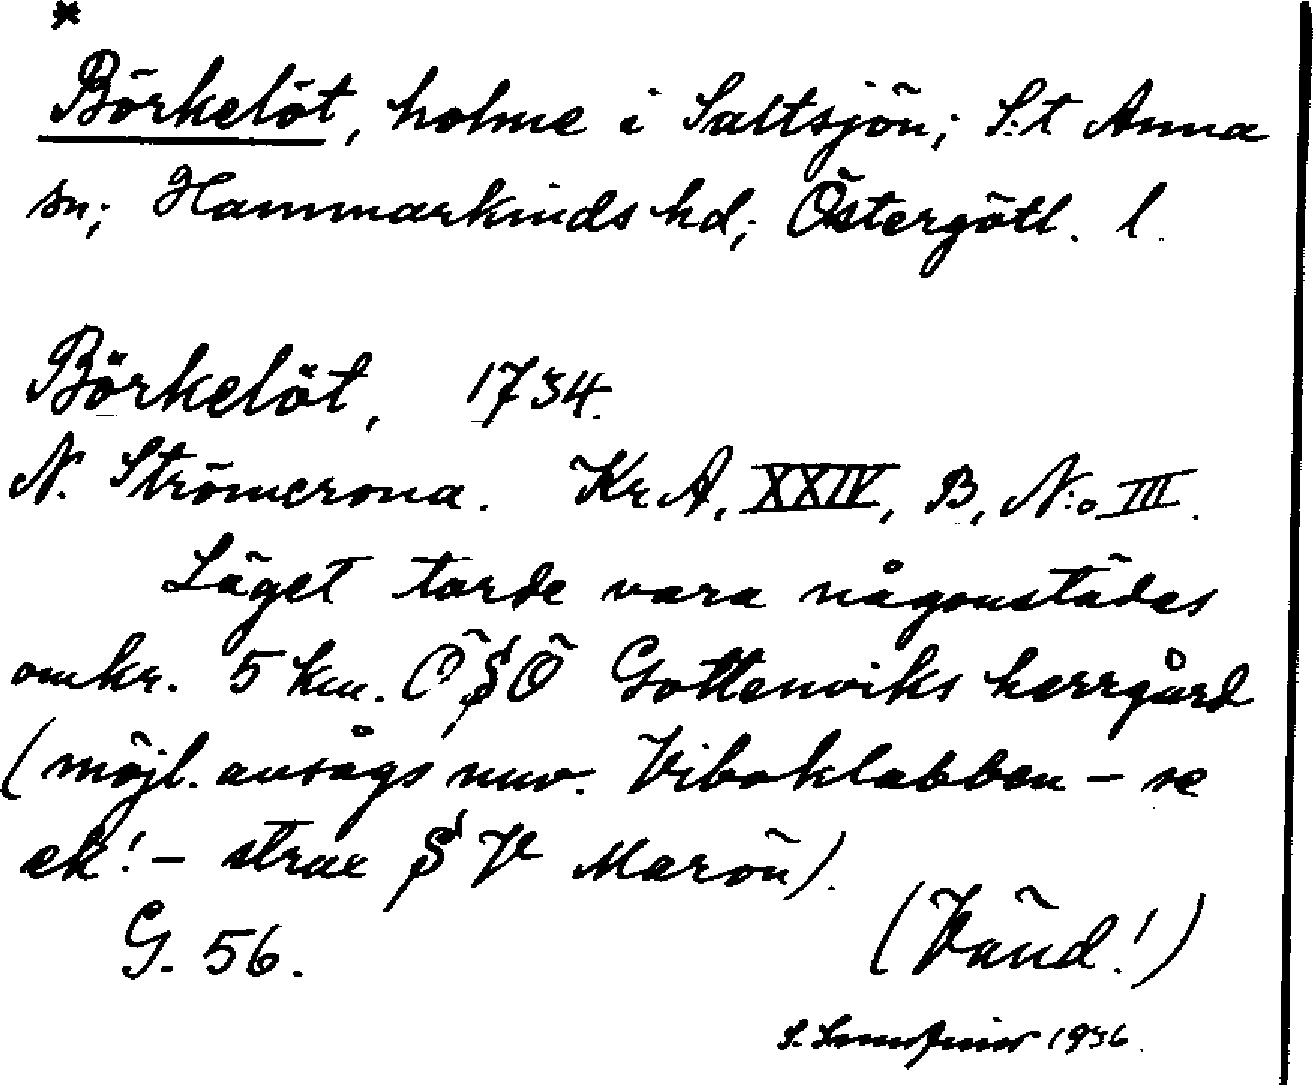 *
Börkelöt, holme i Saltsjön; S:t Anna
sn; Hammarkinds hd; Östergötl. l.
Börkelöt, 1734.
N. Strömcrona. Kr A, XXIV, B, N:o III.
Läget torde vara någonstädes
omkr. 5 km. Ö S Ö Gottenviks herrgård
(möjl. avsågs nuv. Viboklabben – se
ek! – strax S V Marön).
G. 56.
(Vänd!)
S. 1936.